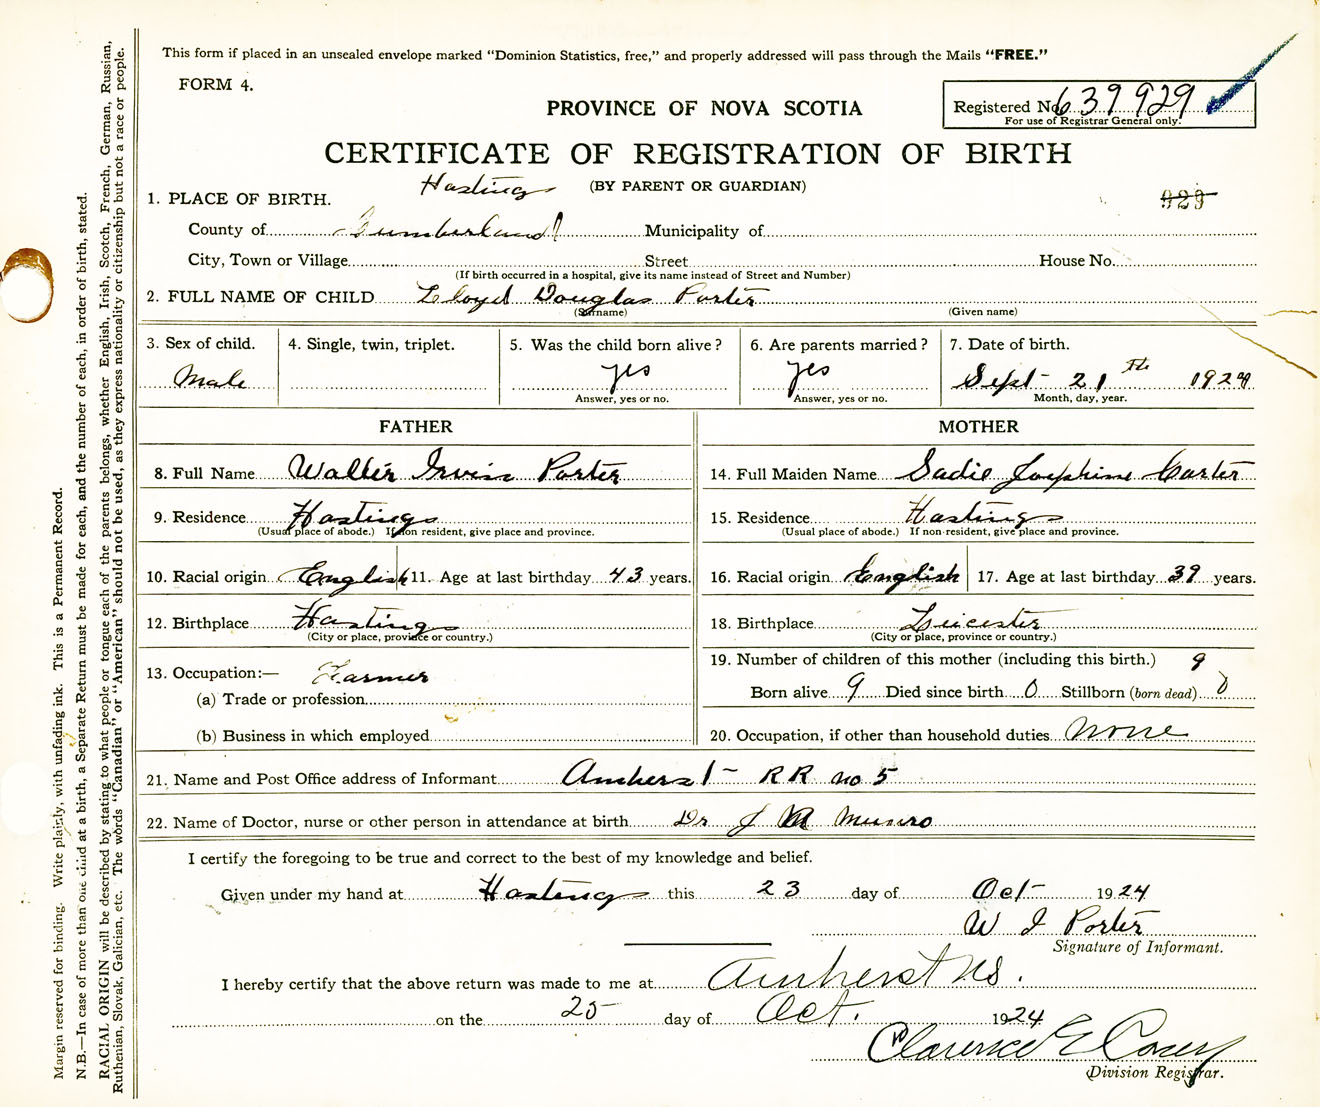 This form if placed in an unsealed envelope marked "Dominion Statistics, free," and properly addressed will pass through the Mails "FREE."
FORM 4.
PROVINCE OF NOVA SCOTIA
Registered No. 639929
For use of Registrar General only.
CERTIFICATE OF REGISTRATION OF BIRTH
(BY PARENT OR GUARDIAN)
929
1. PLACE OF BIRTH. Hastings
County of Cumberland Municipality of
City, Town or Village Street House No.
(If birth occurred in a hospital, give its name instead of Street and Number)
2. FULL NAME OF CHILD Lloyd Douglas Porter
(Surname) (Given name)
3. Sex of child. 4. Single, twin, triplet. 5. Was the child born alive? 6. Are parents married? 7. Date of birth.
Male yes yes Sept 21th 1924
Answer, yes or no. Answer, yes or no. Month, day, year.
FATHER MOTHER
8. Full Name Walter Irvin Porter 14. Full Maiden Name Sadie Josephine Carter
9. Residence Hastings 15. Residence Hastings
(Usual place of abode.) If non resident, give place and province. (Usual place of abode.) If non-resident, give place and province.
10. Racial origin English 11. Age at last birthday 43 years. 16. Racial origin English 17. Age at last birthday 39 years.
12. Birthplace Hastings 18. Birthplace Leicester
(City or place, province or country.) (City or place, province or country.)
13. Occupation:— Farmer 19. Number of children of this mother (including this birth.) 9
(a) Trade or profession Born alive 9 Died since birth 0 Stillborn (born dead) 0
(b) Business in which employed 20. Occupation, if other than household duties None
21. Name and Post Office address of Informant Amherst RR no 5
22. Name of Doctor, nurse or other person in attendance at birth Dr J M Munro
I certify the foregoing to be true and correct to the best of my knowledge and belief.
Given under my hand at Hastings this 23 day of Oct 1924
W I Porter
Signature of Informant.
I hereby certify that the above return was made to me at Amherst NS.
on the 25 day of Oct. 1924
Clarence E Casey
Division Registrar.
Margin reserved for binding. Write plainly, with unfading ink. This is a Permanent Record.
N.B.—In case of more than one child at a birth, a Separate Return must be made for each, and the number of each, in order of birth, stated.
RACIAL ORIGIN will be described by stating to what people or tongue each of the parents belongs, whether English, Irish, Scotch, French, German, Russian,
Ruthenian, Slovak, Galician, etc. The words "Canadian" or "American" should not be used, as they express nationality or citizenship but not a race or people.